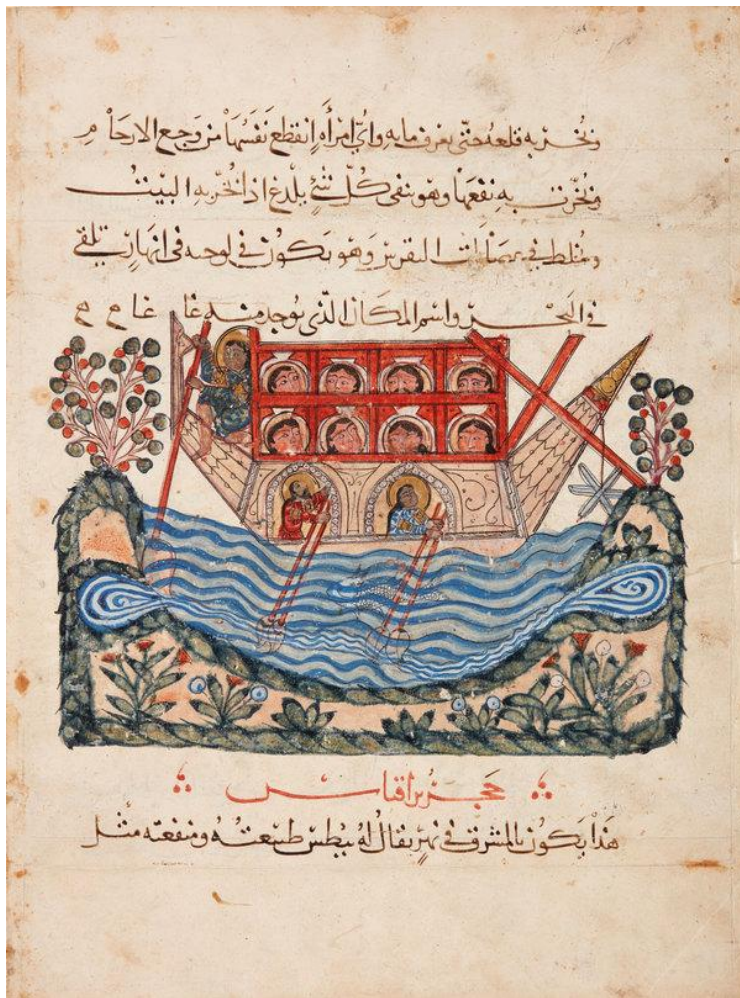 وتخر به قلعه حتى يعرف ما به واي امراه انقطع نفسها من وجع الارحام
وتخرت به نفعها وهو نفى كل شئ يلدغ اذا بخر به البيت
وخلط في النقرس وهو يكون في لوحه في انهار تلقي
في البحر واسم المكان الذي يوجد منه غا غا م م
حجر براقناس
هذا يكون بالمشرق في نهر يقال له بطس طبيعته ومنفعته مثل